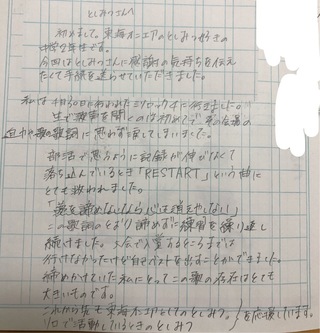 としみつさんへ
初めまして。東海オンエアのとしみつ好きの
中学2年生です。
今回はとしみつさんに感謝の気持ちを伝え
たくて手紙を送らせていただきました。
私は
に行きました。
生で歌声を聞くのは初めてで
迫力や歌詞に思わず涙してしまいました。
部活で思うように記録が伸びなくて
落ち込んでいるとき「RESTART」という曲に
とても救われました。
「夢を諦めないなら
この歌詞のとおり諦めずに練習を繰り返し
続けました。大会で入賞するところまでは
行けなかったけど自己ベストを出すことができました。
諦めかけていた私にとってこの曲の存在はとても
大きいものです。
これから先も東海オンエアとしてのとしみつ。
ソロで活動しているときのとしみつ
を応援しています。